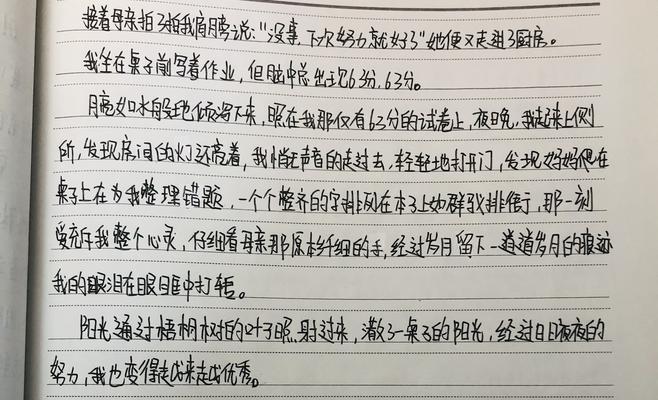 接着母亲拍了拍我肩膀说："没事，下次努力就好了"她便又走进了厨房。
我坐在桌子前写着作业，但脑中总出现63分，63分。
月亮如水般地倾泻下来，照在我那仅有63分的试卷上，夜晚，我起来上侧
所，发现房间的灯还亮着，我悄无声音的走过去，轻轻地打开门，发现妈妈爬在
桌子上在为我整理错题，一个个整齐的字排列在本子上如群蚁排衙，那一刻
爱充斥我整个心灵，仔细看母亲那原本纤细的手，经过岁月留下一道道岁月的痕迹
我的眼泪在眼眶中打转。
阳光通过梧桐树的叶子照射过来，撒了一桌子的阳光，经过日日夜夜的
努力，我也变得越来越优秀。